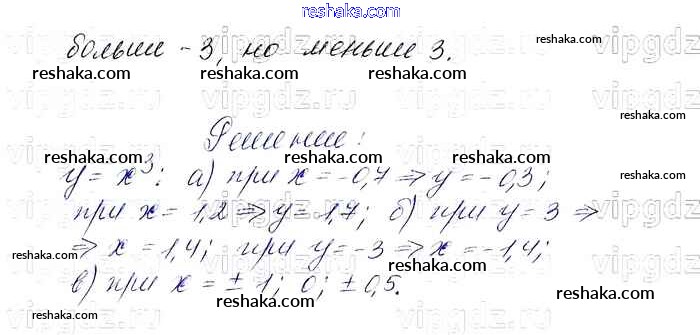 reshaka.com
больше -3, но меньше 3.
reshaka.com reshaka.com reshaka.com reshaka.com
Решение:
reshaka.com reshaka.com reshaka.com
y = x³: а) при x = -0,7 ⇒ y = -0,3;
reshaka.com reshaka.com reshaka.com
при x = 1,2 ⇒ y = 1,7; б) при y = 3 ⇒
⇒ x = 1,4; при y = -3 ⇒ x = -1,4;
reshaka.com reshaka.com reshaka.com
в) при x = ± 1; 0; ± 0,5.
reshaka.com reshaka.com reshaka.com